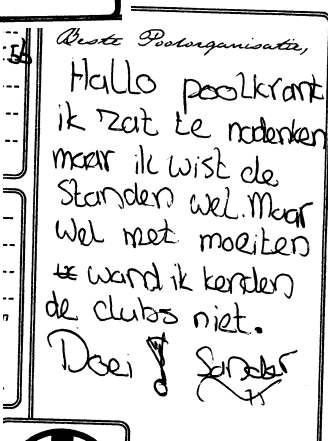 Beste Poolorganisatie,
Hallo poolkrant
ik zat te nadenken
maar ik wist de
standen wel. Maar
wel met moeiten
wand ik kenden
de clubs niet.
Doei! Sander